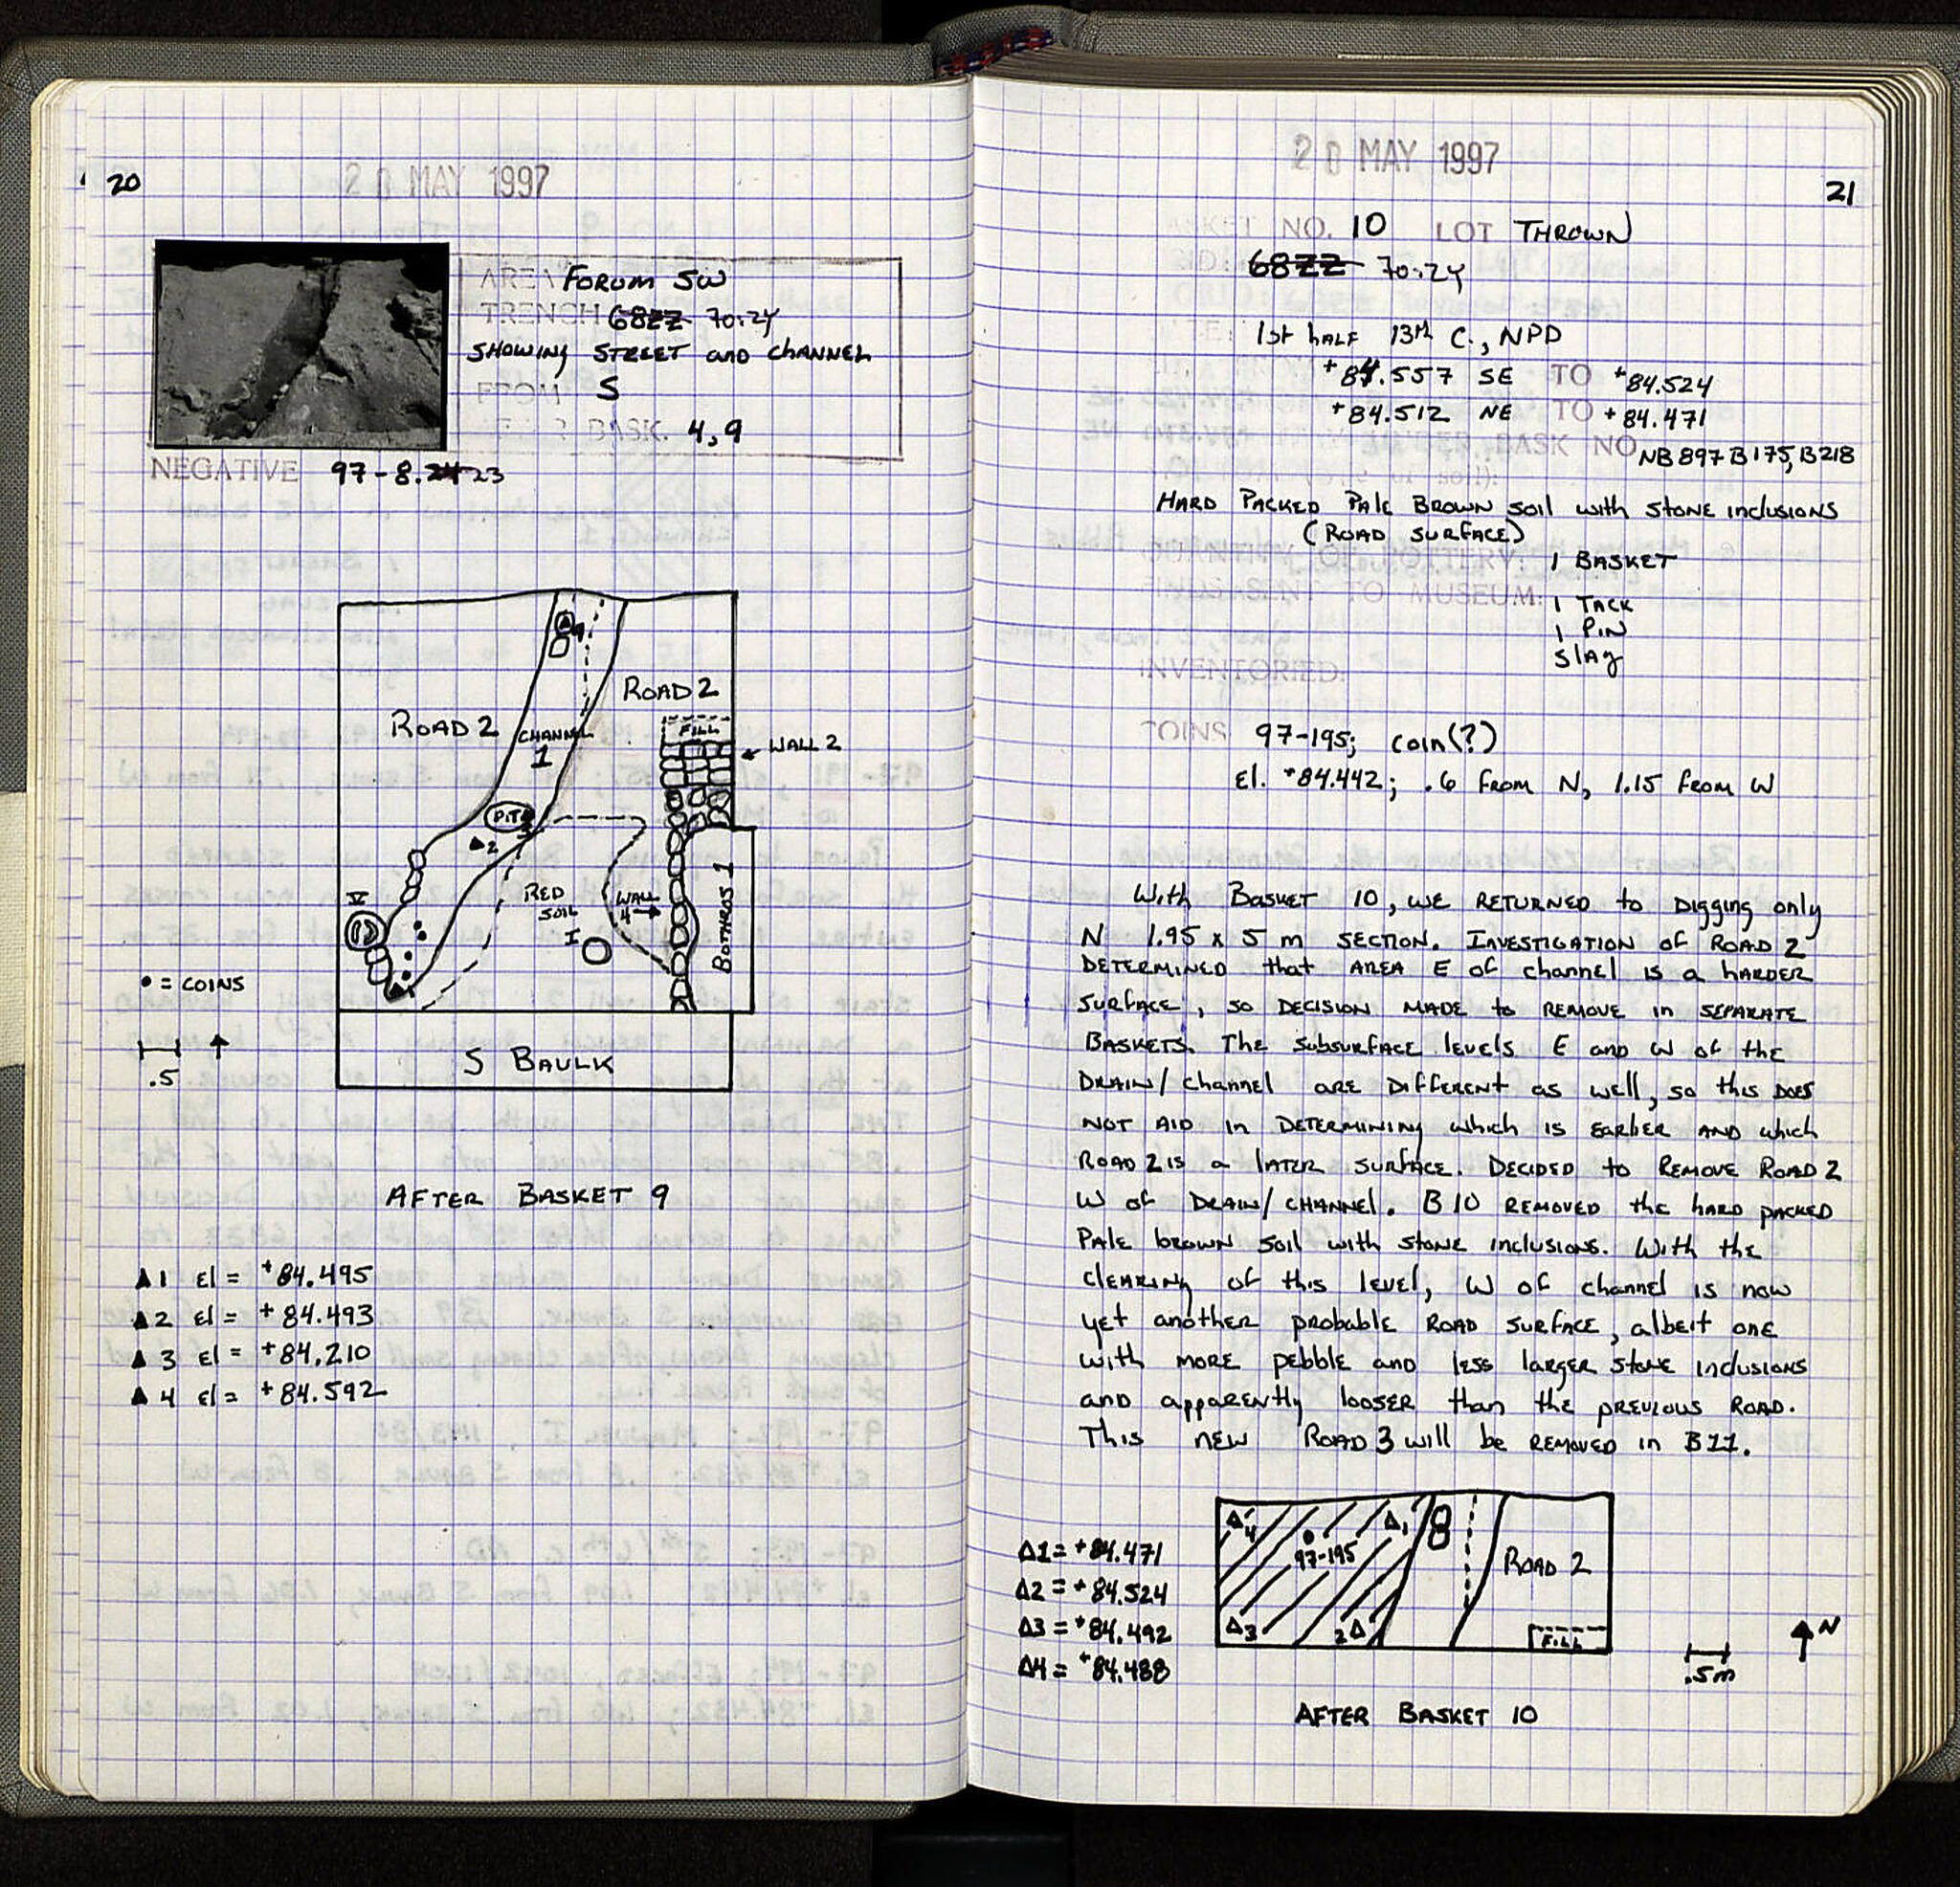 20
28 MAY 1997
AREA FORUM SW
TRENCH 68ZZ 70:ZY
SHOWING STREET and CHANNEL
FROM S
AFTER BASK. 4,9
NEGATIVE 97-8.24 23
4
ROAD 2
ROAD 2
FILL
CHANNEL
1
WALL 2
PIT
3
2
RED
SOIL
WALL
4
BOTHROS 1
V
I
1
• = COINS
.5
S BAULK
AFTER BASKET 9
▲1 El = +84.495
▲2 El = +84.493
▲3 El = +84.210
▲4 El = +84.592
28 MAY 1997
21
BASKET NO. 10 LOT THROWN
68ZZ 70:ZY
1st half 13th C., NPD
+84.557 SE TO +84.524
+84.512 NE TO +84.471
BASK NO NB 897 B175, B218
HARD PACKED PALE BROWN soil with stone inclusions
(ROAD SURFACE)
QUANTITY OF POTTERY: 1 BASKET
TO MUSEUM: 1 TACK
1 PIN
Slag
INVENTORIED:
COINS 97-195; coin(?)
El. +84.442; .6 from N, 1.15 from W
With Basket 10, WE RETURNED to Digging only
N 1.95 x 5 m SECTION. INVESTIGATION of ROAD 2
DETERMINED that AREA E of channel is a HARDER
SURFACE, so DECISION MADE to REMOVE in SEPARATE
BASKETS. The subsurface levels E and W of the
DRAIN/channel ARE DIFFERENT as well, so this DOES
NOT AID in DETERMINING which is EARLIER AND which
ROAD 2 is a LATER SURFACE. DECIDED to REMOVE ROAD 2
W of DRAIN/CHANNEL. B 10 REMOVED the hard packed
Pale brown soil with stone inclusions. With the
clearing of this level, W of channel is now
yet another probable ROAD surface, albeit one
with more pebble and less larger stone inclusions
and apparently looser than the previous ROAD.
This new ROAD 3 will be REMOVED in B11.
Δ1 = +84.471
Δ2 = +84.524
Δ3 = +84.492
Δ4 = +84.488
Δ4
Δ1
97-195
ROAD 2
Δ3
2Δ
FILL
N
.5m
AFTER BASKET 10